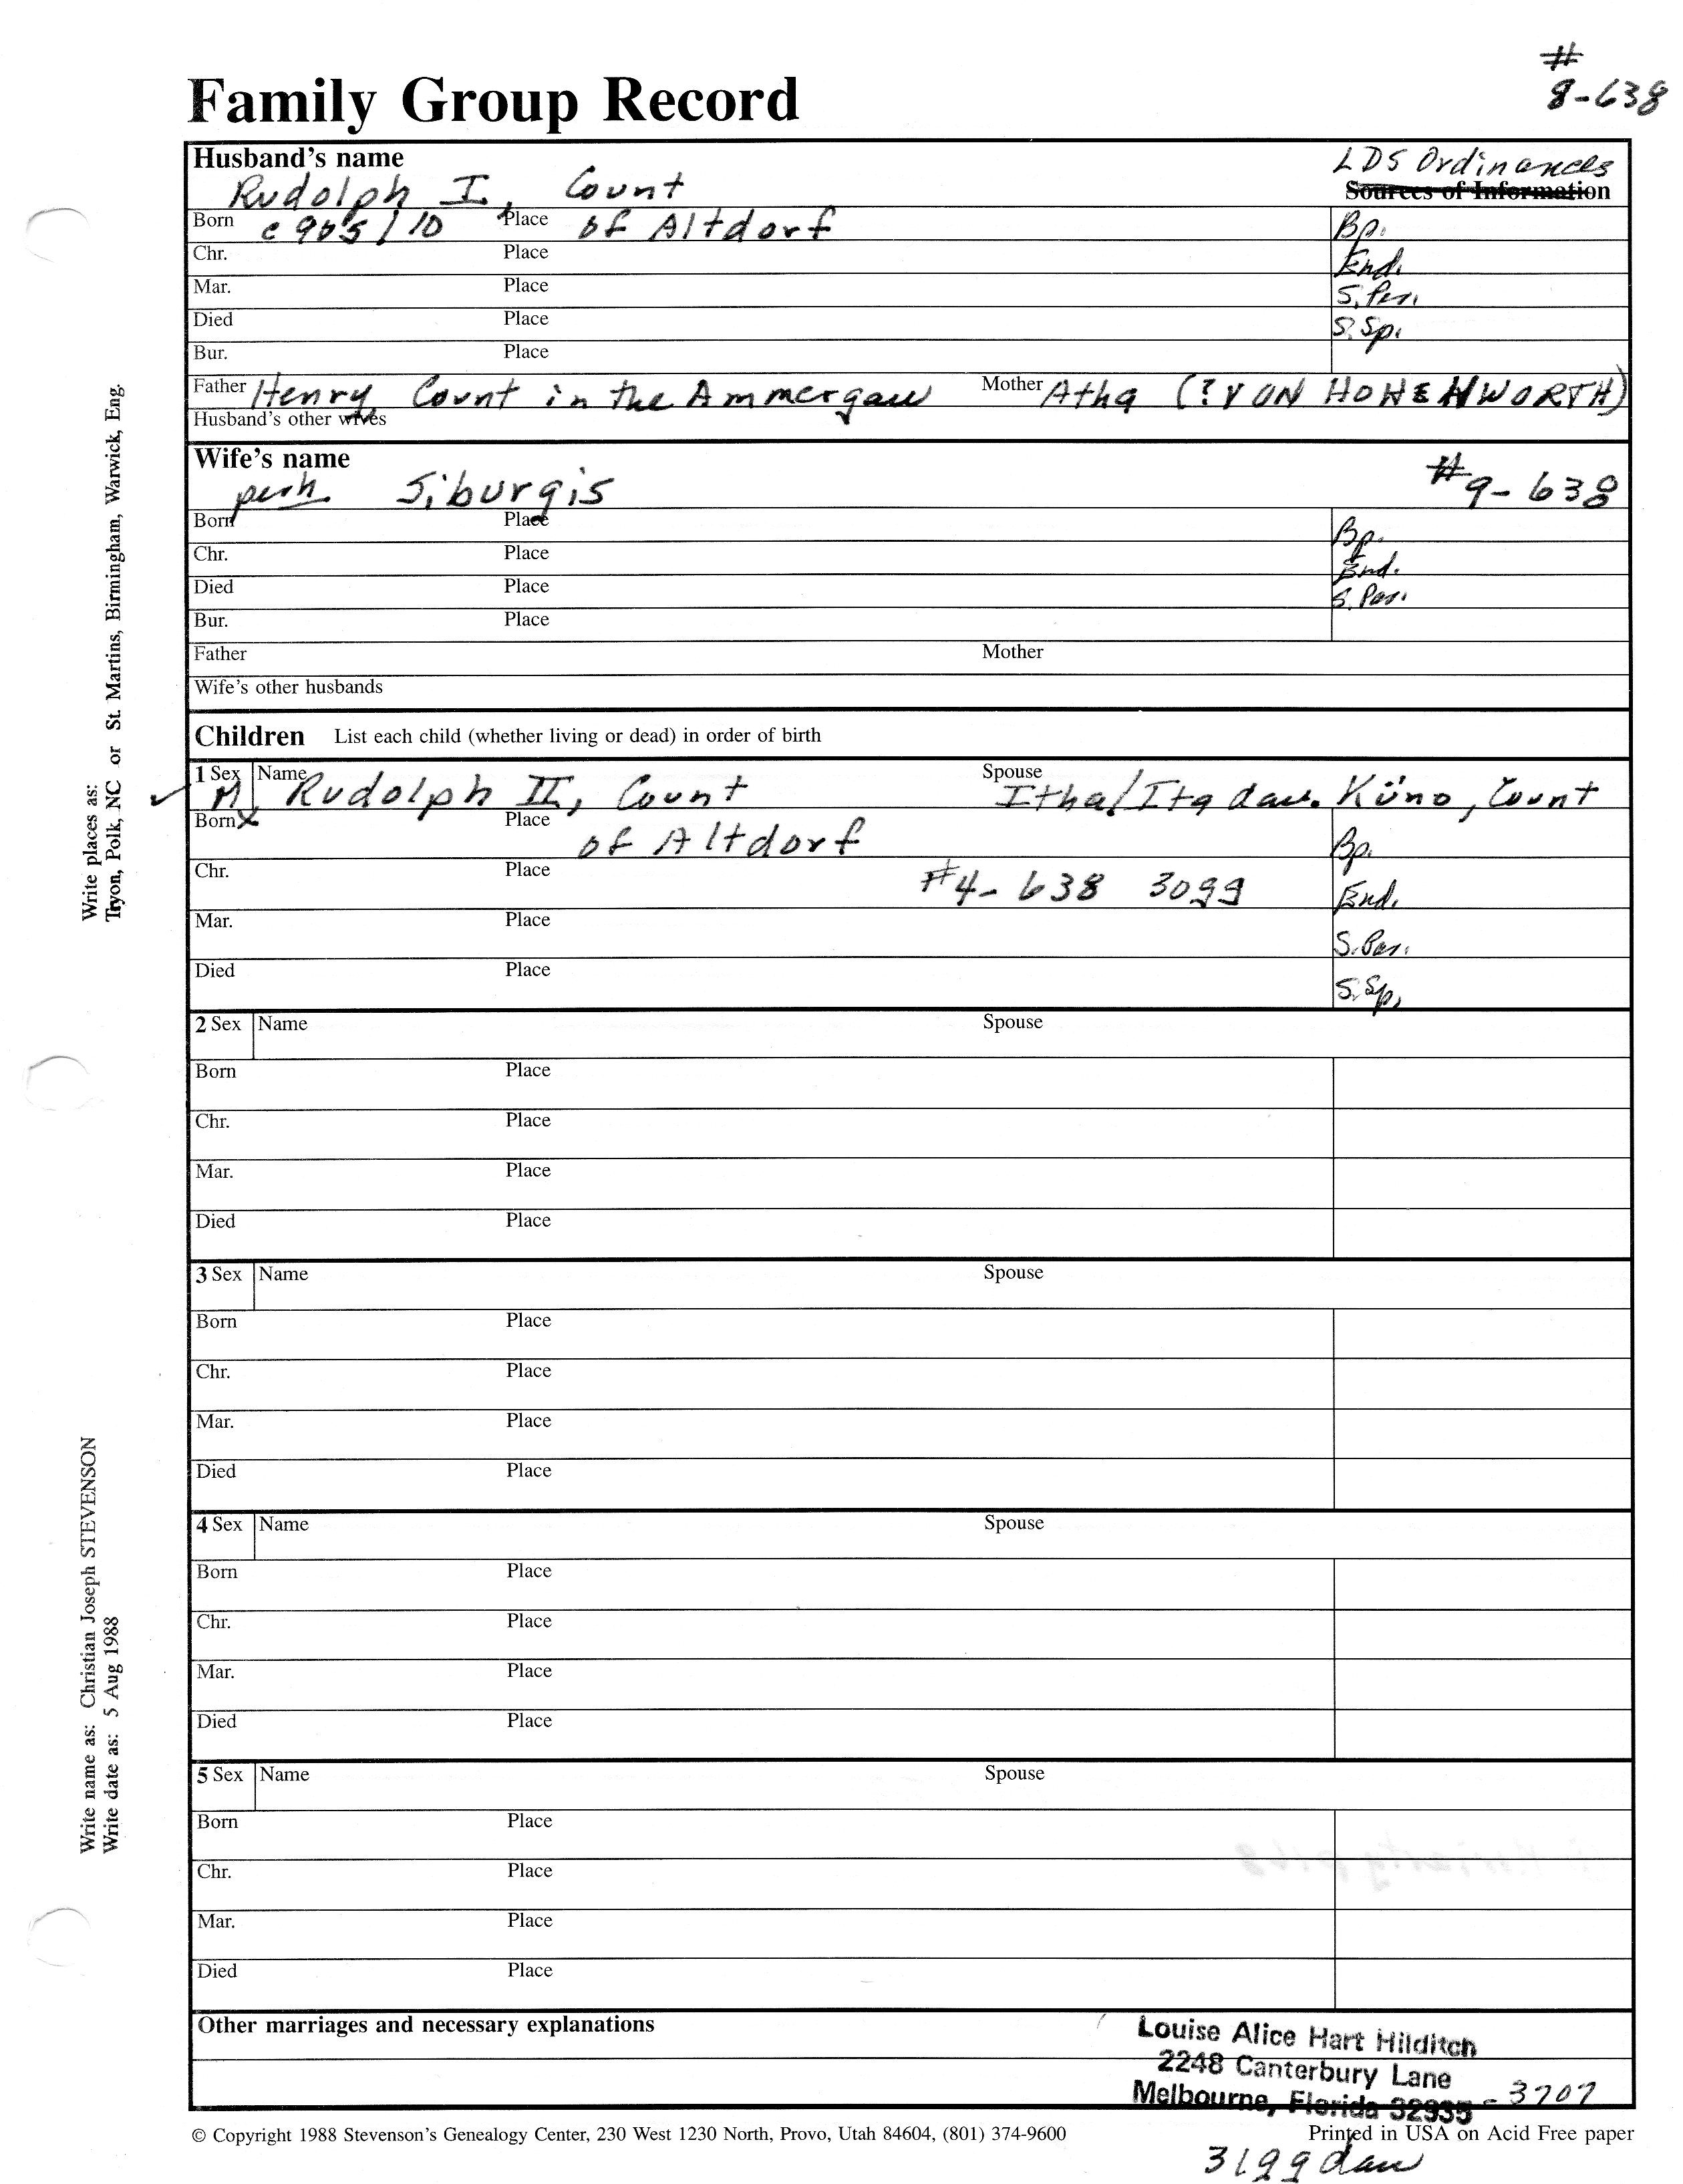 #
8-638
Family Group Record
Husband's name
LDS Ordinances
Sources of Information
Rudolph I, Count
Born c 905/10 Place of Altdorf Bp.
Chr. Place End.
Mar. Place S. Par.
Died Place S. Sp.
Bur. Place
Father Henry Count in the Ammergau Mother Atha (? VON HOHENWORTH)
Husband's other wives
Wife's name
perh Siburgis #9-638
Born Place Bp.
Chr. Place End.
Died Place S. Par.
Bur. Place
Father Mother
Wife's other husbands
Children List each child (whether living or dead) in order of birth
1 Sex Name Spouse
M Rudolph II, Count Itha/Ita dau. Küno, Count
Born X Place of Altdorf Bp.
Chr. Place #4-638 3099 End.
Mar. Place S. Par.
Died Place S. Sp.
2 Sex Name Spouse
Born Place
Chr. Place
Mar. Place
Died Place
3 Sex Name Spouse
Born Place
Chr. Place
Mar. Place
Died Place
4 Sex Name Spouse
Born Place
Chr. Place
Mar. Place
Died Place
5 Sex Name Spouse
Born Place
Chr. Place
Mar. Place
Died Place
Other marriages and necessary explanations
Louise Alice Hart Hilditch
2248 Canterbury Lane
Melbourne, Florida 32935 - 3707
© Copyright 1988 Stevenson's Genealogy Center, 230 West 1230 North, Provo, Utah 84604, (801) 374-9600
Printed in USA on Acid Free paper
Write places as:
Tryon, Polk, NC or St. Martins, Birmingham, Warwick, Eng.
Write name as: Christian Joseph STEVENSON
Write date as: 5 Aug 1988